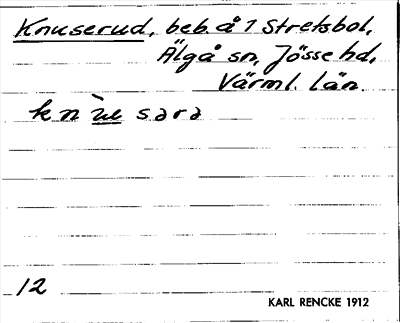 Knuserud, beb. å 1 Stretsbol,
Älgå sn, Jösse hd,
Värml. län
knùesara
12
KARL RENCKE 1912